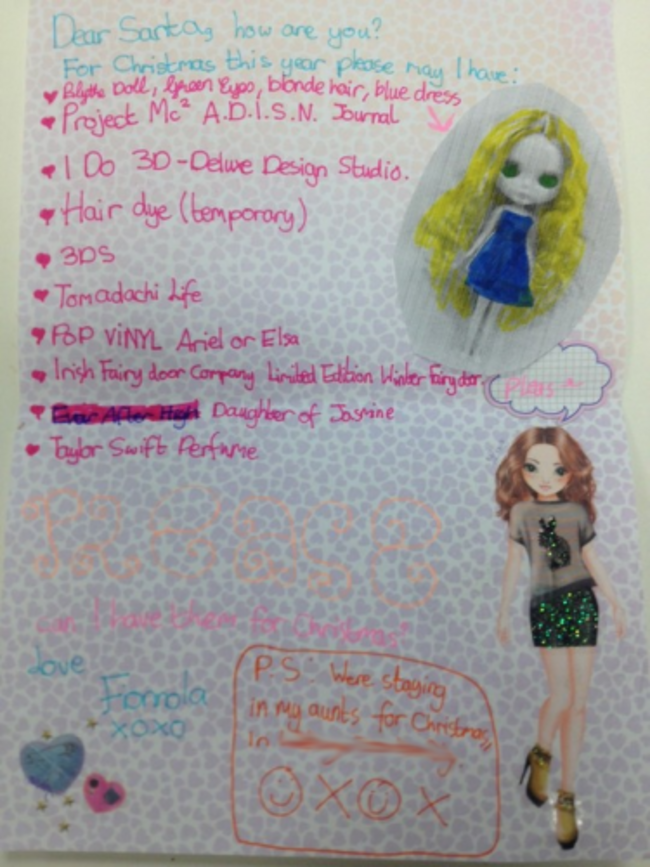 Dear Santa, how are you?
For Christmas this year please may I have:
Blythe Doll, Green Eyes, blonde hair, blue dress
Project Mc² A.D.I.S.N. Journal
I Do 3D-Deluxe Design Studio.
Hair dye (temporary)
3DS
Tomadachi Life
POP VINYL Ariel or Elsa
Irish Fairy door Company Limited Edition Winter Fairy door
Ever After High Daughter of Jasmine
Taylor Swift Perfume
PLEASE
can I have them for Christmas?
Love
xoxo
P.S: Were staying
in my aunts for Christmas,
In